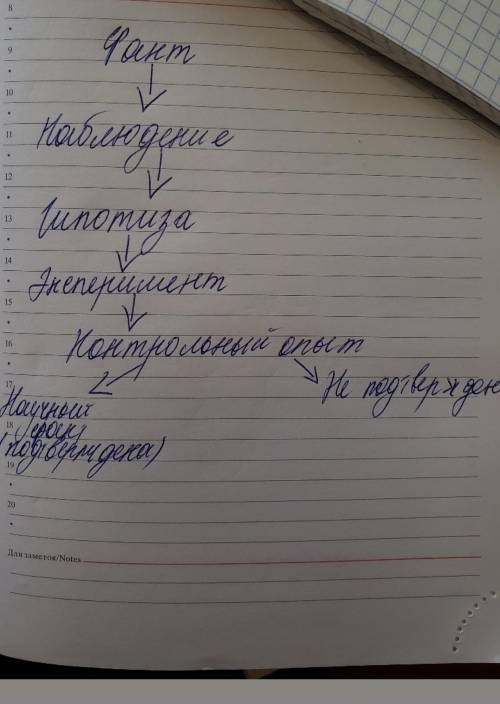 8
9
10
11
12
13
14
15
16
17
18
19
20
Факт
Наблюдение
Гипотиза
Эксперимент
Контрольный опыт
Не подтвержден
Научный
(подтверждена)
Для заметок/Notes